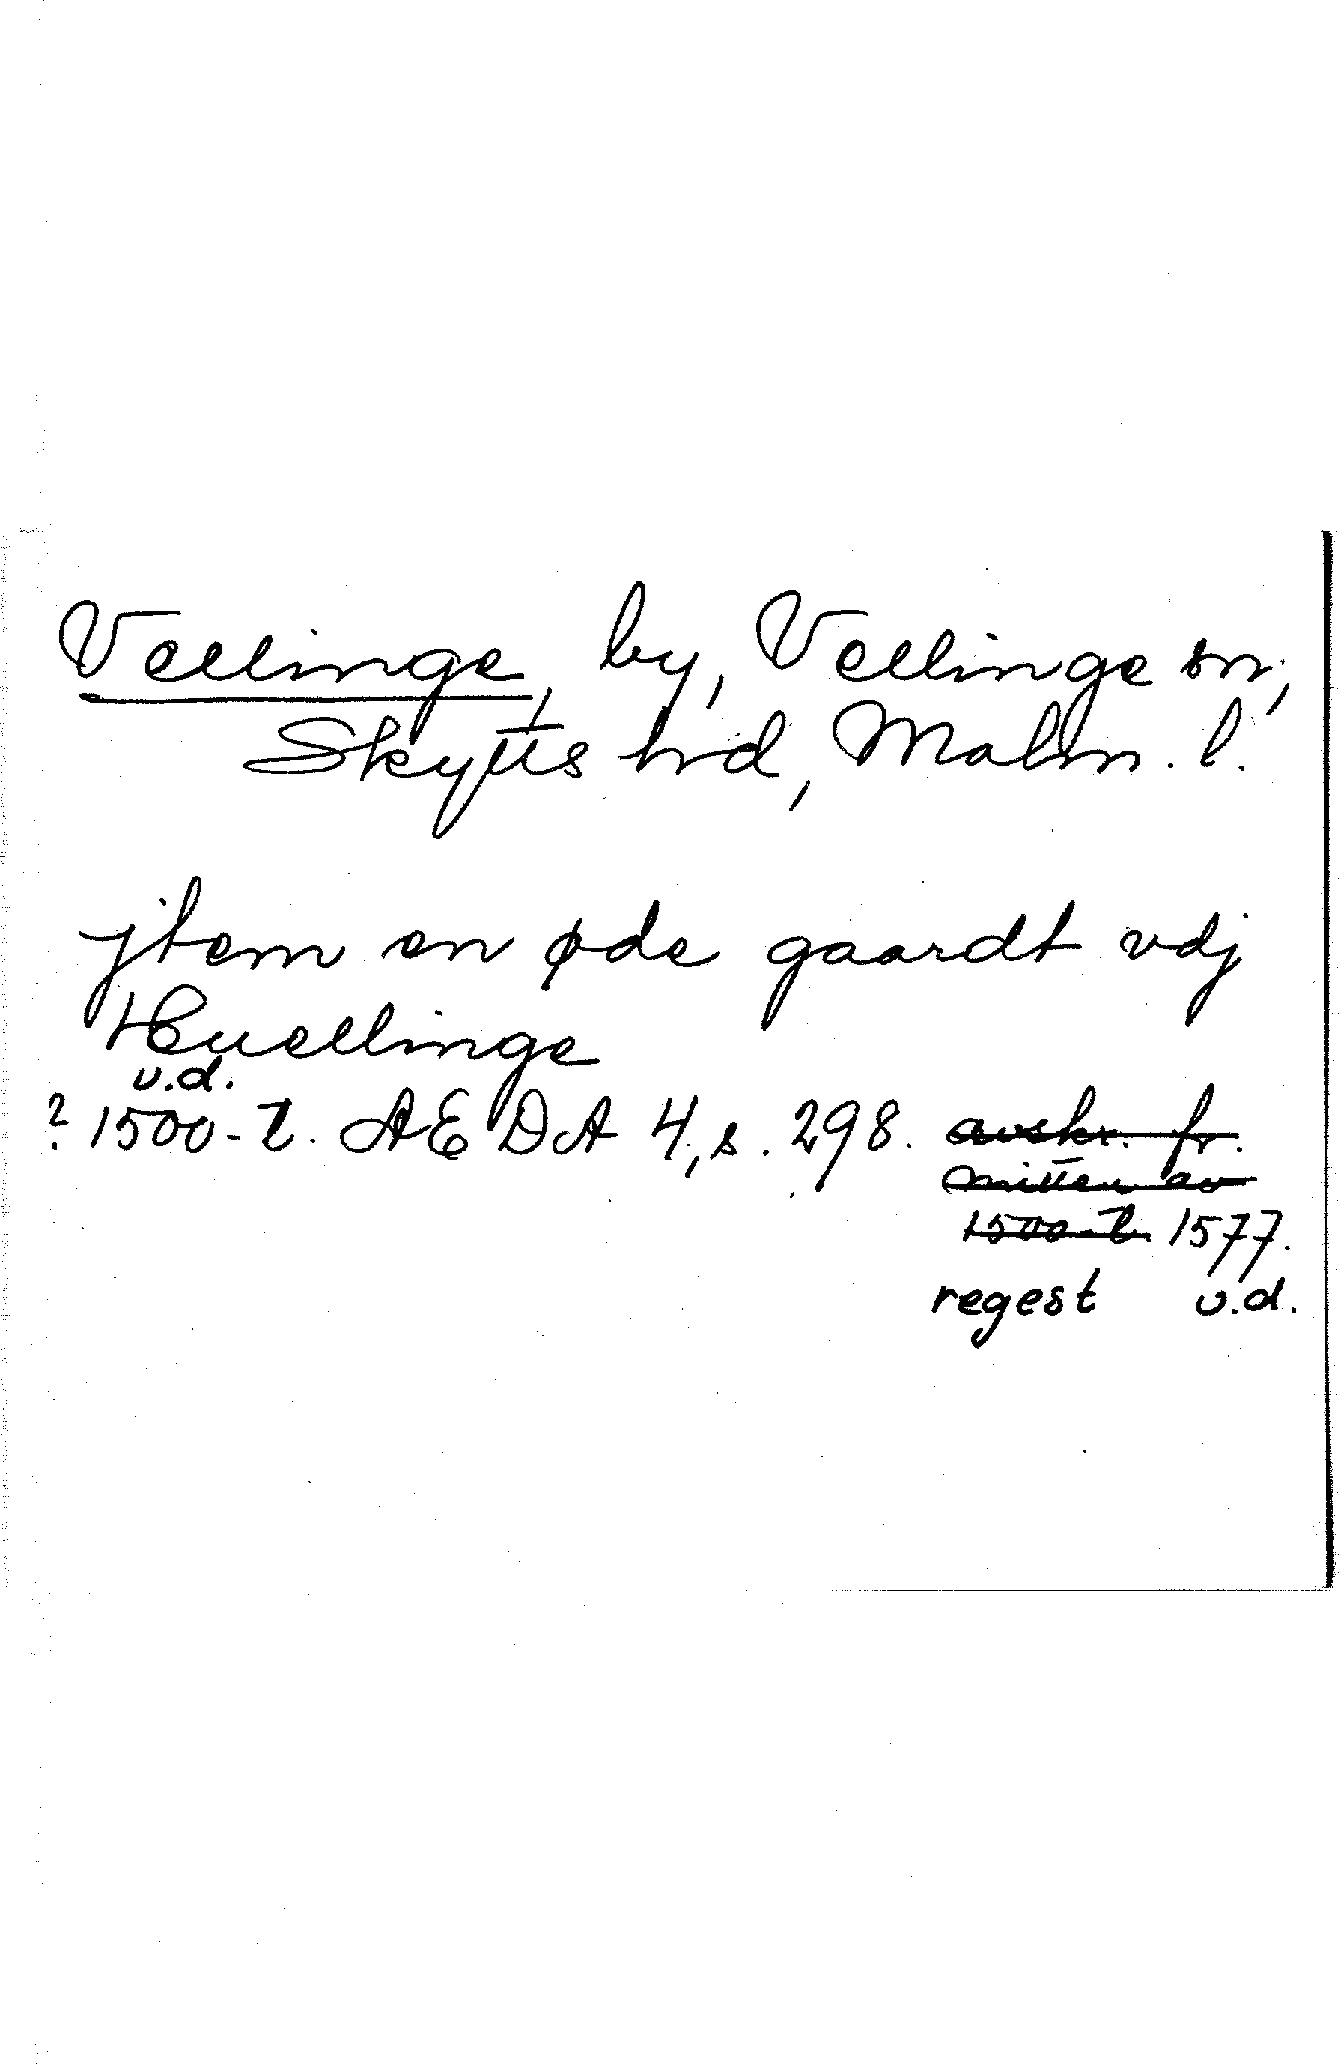 Vellinge, by, Vellinge sn,
Skytts hd, Malm. l.
jtem en øde gaardt vdj
Huellinge
u.d.
? 1500-t. AEDA 4, s. 298. avskr. fr.
mitten av
1500-t. 1577.
regest u.d.